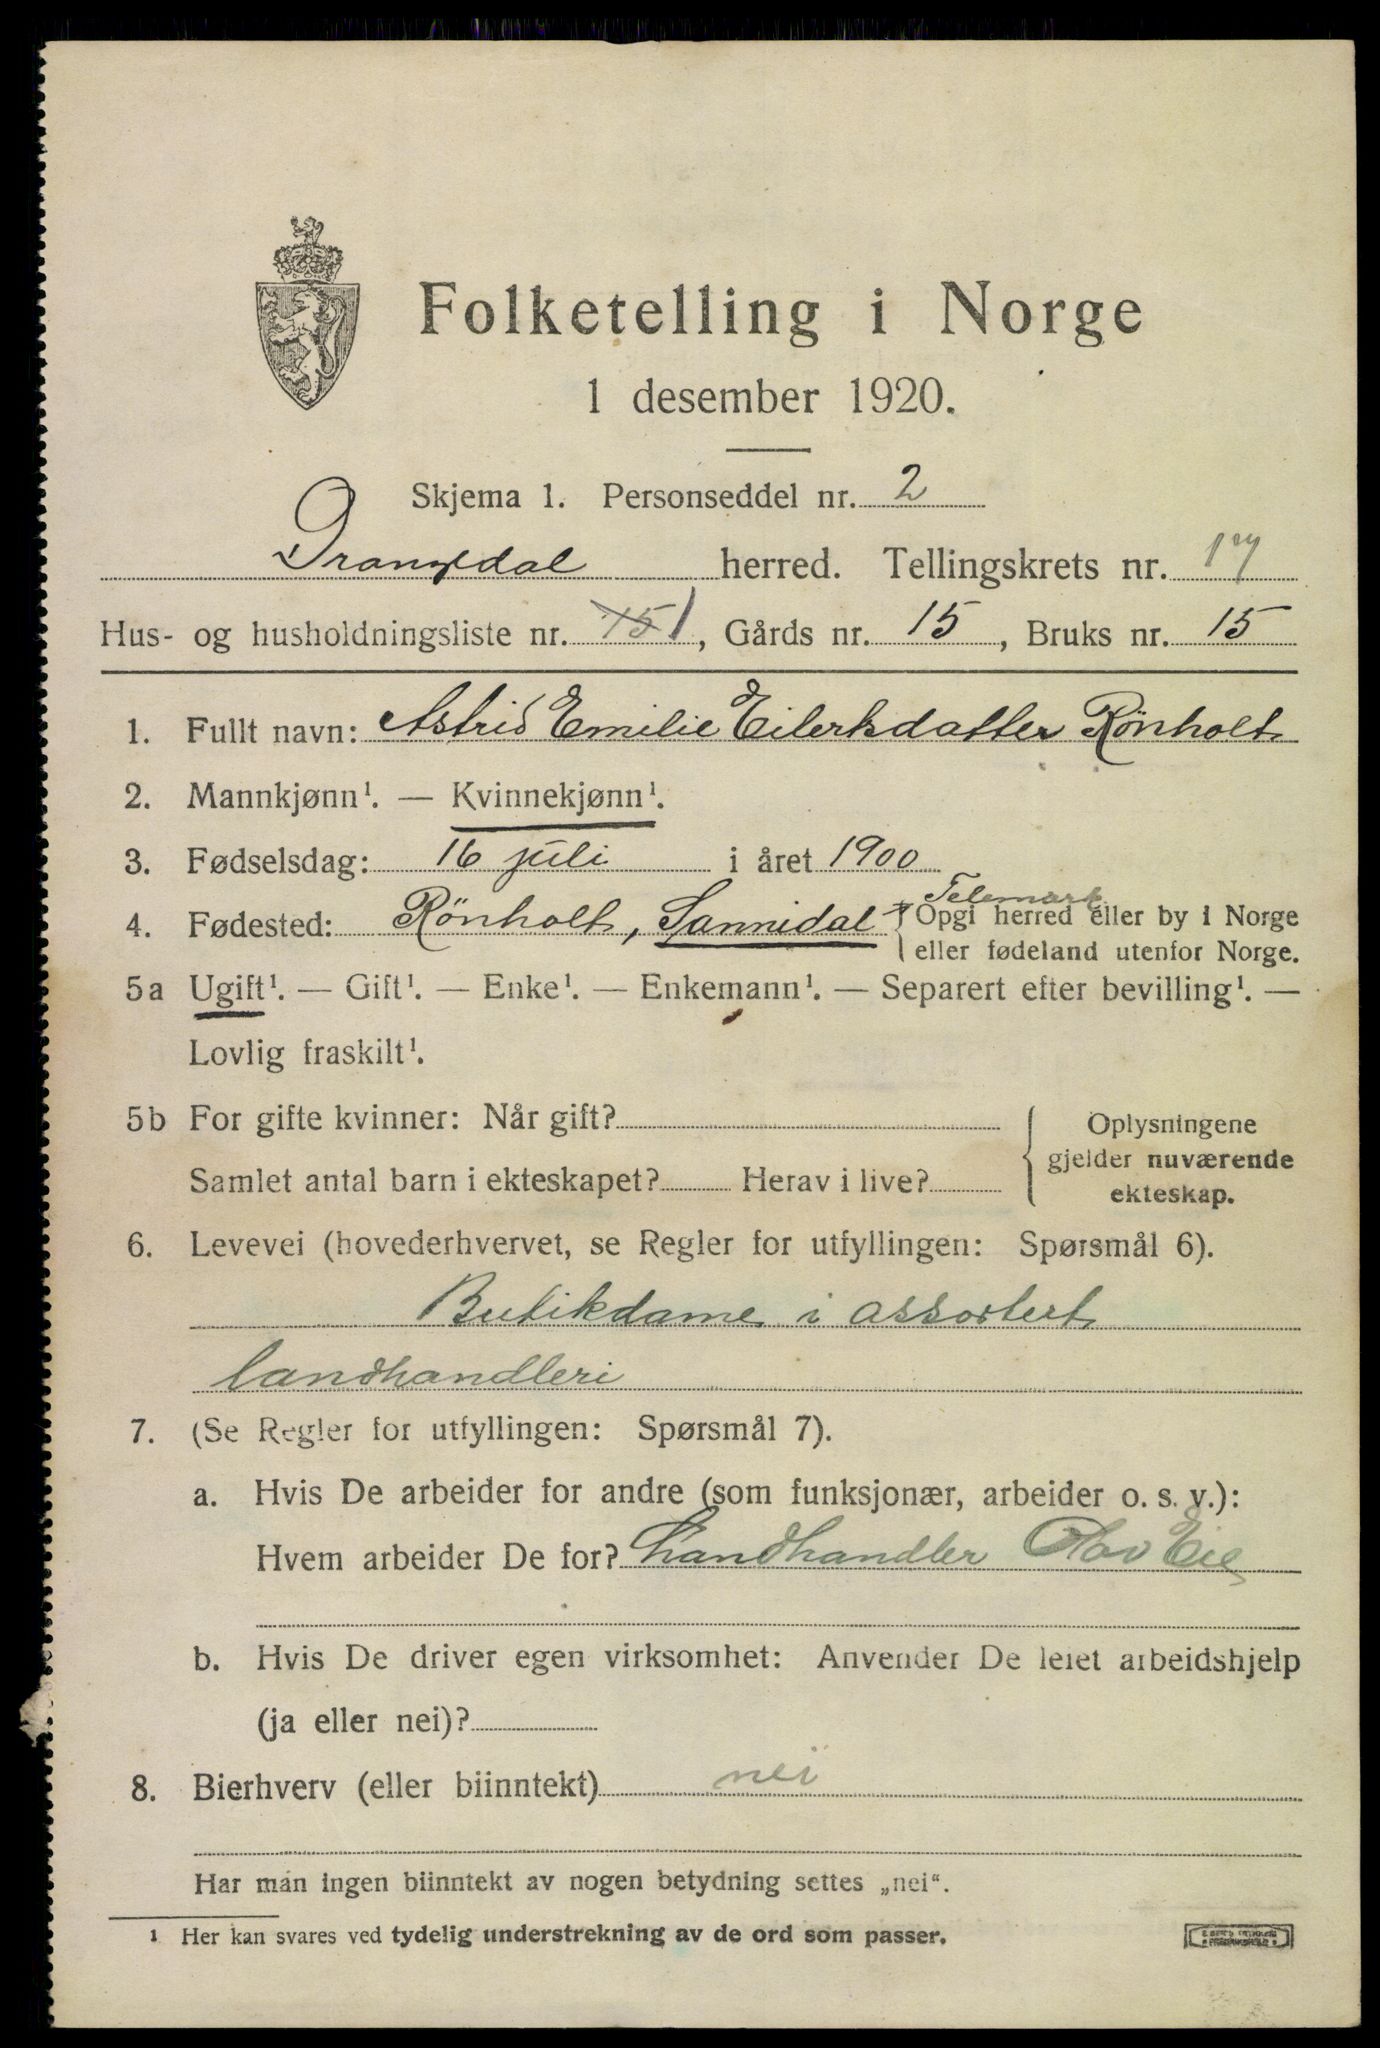 Folketelling i Norge
1 desember 1920.
Skjema 1. Personseddel nr. 2
Drangedal herred. Tellingskrets nr. 17
Hus- og husholdningsliste nr. 15 1, Gårds nr. 15, Bruks nr. 15
1. Fullt navn: Astrid Emilie Eilertsdatter Rönholt
2. Mannkjønn¹. — Kvinnekjønn¹.
3. Fødselsdag: 16 juli i året 1900
Telemark
4. Fødested: Rönholt, Sannidal { Opgi herred eller by i Norge
eller fødeland utenfor Norge.
5a Ugift¹. — Gift¹. — Enke¹. — Enkemann¹. — Separert efter bevilling¹. —
Lovlig fraskilt¹.
5b For gifte kvinner: Når gift?
Samlet antal barn i ekteskapet? Herav i live?
Oplysningene
gjelder nuværende
ekteskap.
6. Levevei (hovederhvervet, se Regler for utfyllingen: Spørsmål 6).
Butikdame i assortert
landhandleri
7. (Se Regler for utfyllingen: Spørsmål 7).
a. Hvis De arbeider for andre (som funksjonær, arbeider o. s. v.):
Hvem arbeider De for? Landhandler Olav Eie
b. Hvis De driver egen virksomhet: Anvender De leiet arbeidshjelp
(ja eller nei)?
8. Bierhverv (eller biinntekt) nei
Har man ingen biinntekt av nogen betydning settes „nei“.
1 Her kan svares ved tydelig understrekning av de ord som passer.